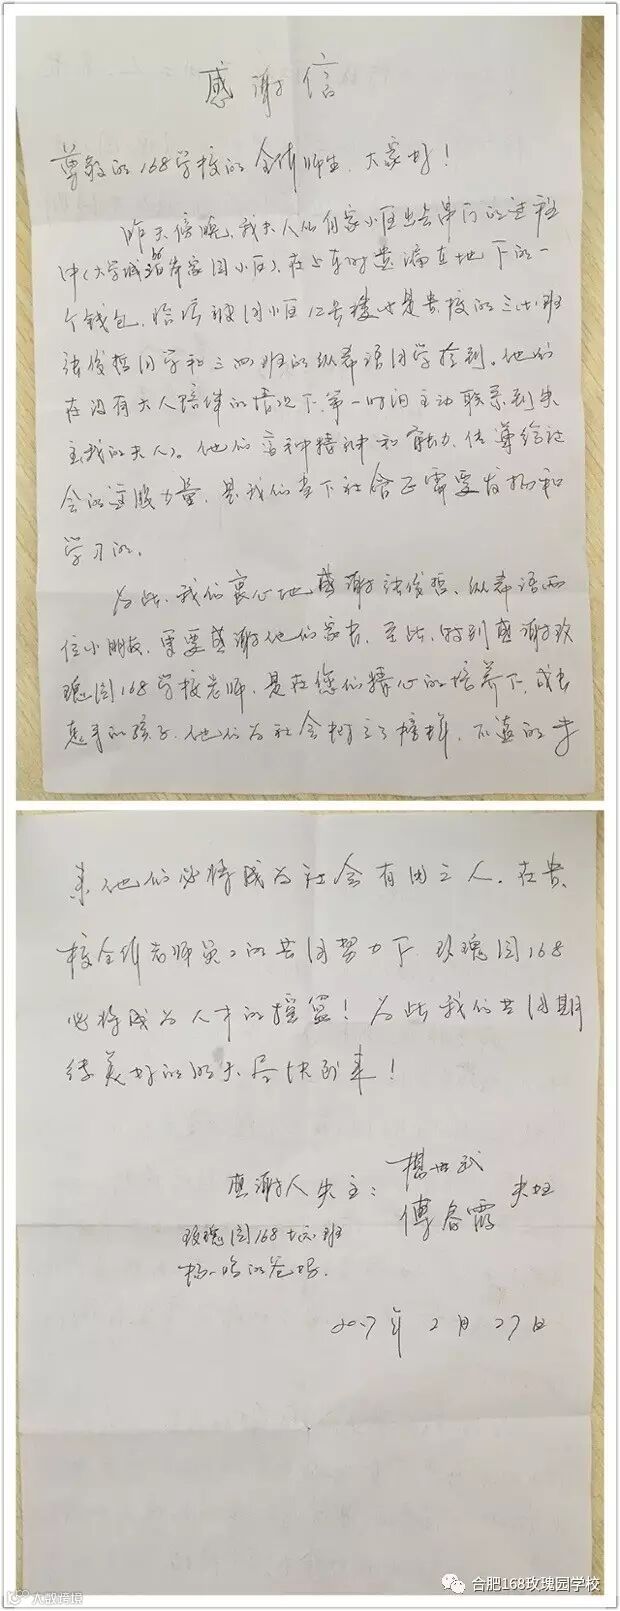 感谢信
尊敬的168学校的全体师生,大家好!
昨天傍晚,我夫人从自家小区出去串门的过程
中(大学城 岸家园小区),在上车时遗漏在地下的一
个钱包,恰 园小区12号楼 是贵校的三 班
张俊哲同学和三四班的纵希语同学捡到。他们
在没有大人陪伴的情况下,第一时间主动联系到失
主(我的夫人)。他们 种精神和 传 给社
会的正能力量,是我们当下社会正需要发扬和
学习的。
为此,我们衷心地感谢张俊哲、纵希语两
位小朋友,更要感谢他们家长。至此,特别感谢玫
瑰园168学校老师,是在您们精心的培养下,成长
的孩子,他们为社会树立了榜样,不远的未
来他们必将成为社会有用之人,在贵
校全体老师员工的共同努力下,玫瑰园168
必将成为人才的摇篮!为此我们共同期
待美好的明天尽快到来!
感谢人失主: 世武
傅 霞 夫妇
玫瑰园168 班
杨 的爸妈.
2017年2月27日
合肥168玫瑰园学校
大数跨境